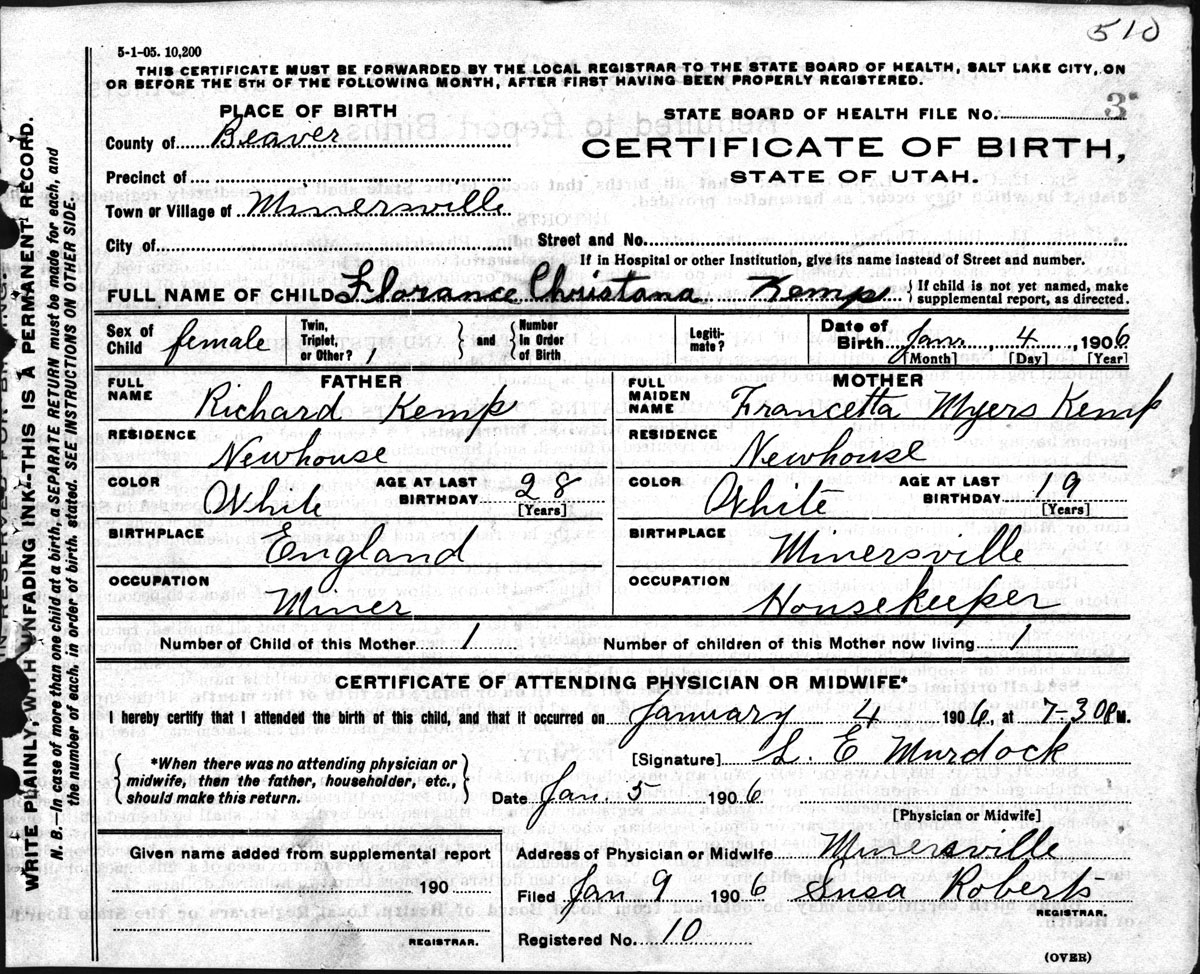 510
5-1-05. 10,200
THIS CERTIFICATE MUST BE FORWARDED BY THE LOCAL REGISTRAR TO THE STATE BOARD OF HEALTH, SALT LAKE CITY, ON
OR BEFORE THE 5TH OF THE FOLLOWING MONTH, AFTER FIRST HAVING BEEN PROPERLY REGISTERED.
PLACE OF BIRTH
STATE BOARD OF HEALTH FILE No. 3
County of Beaver
CERTIFICATE OF BIRTH,
Precinct of
STATE OF UTAH.
Town or Village of Minersville
City of
Street and No.
If in Hospital or other Institution, give its name instead of Street and number.
FULL NAME OF CHILD Florance Christana Kemp { If child is not yet named, make
supplemental report, as directed.
Sex of Child female
Twin, Triplet, or Other? 1 } and { Number in Order of Birth
Legitimate?
Date of Birth Jan. 4, 1906
[Month] [Day] [Year]
FATHER
FULL NAME Richard Kemp
RESIDENCE Newhouse
COLOR White AGE AT LAST BIRTHDAY 28 [Years]
BIRTHPLACE England
OCCUPATION Miner
MOTHER
FULL MAIDEN NAME Francetta Myers Kemp
RESIDENCE Newhouse
COLOR White AGE AT LAST BIRTHDAY 19 [Years]
BIRTHPLACE Minersville
OCCUPATION Housekeeper
Number of Child of this Mother 1 Number of children of this Mother now living 1
CERTIFICATE OF ATTENDING PHYSICIAN OR MIDWIFE*
I hereby certify that I attended the birth of this child, and that it occurred on January 4 1906, at 7-30 P M.
{ *When there was no attending physician or
midwife, then the father, householder, etc.,
should make this return. }
[Signature] L. E Murdock
Date Jan. 5 1906
[Physician or Midwife]
Given name added from supplemental report
190
REGISTRAR.
Address of Physician or Midwife Minersville
Filed Jan 9 1906 Susa Roberts
REGISTRAR.
Registered No. 10
(OVER)
WRITE PLAINLY, WITH UNFADING INK-THIS IS A PERMANENT RECORD.
N. B.—In case of more than one child at a birth, a SEPARATE RETURN must be made for each, and
the number of each, in order of birth, stated. SEE INSTRUCTIONS ON OTHER SIDE.